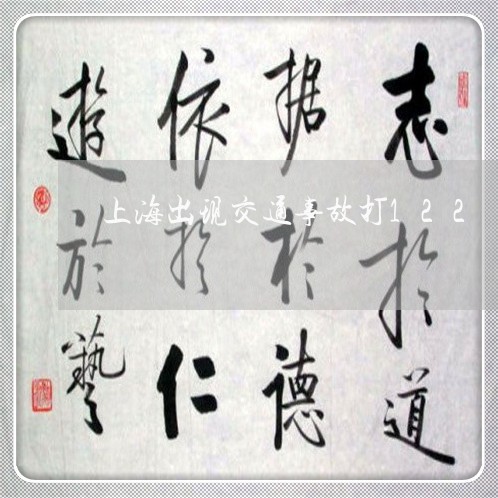 志於道
据於德
依於仁
遊於藝
上海出现交通事故打122